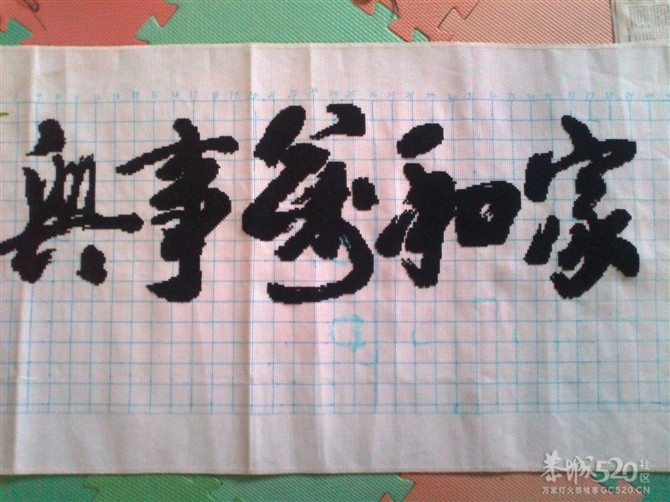 家和萬事興
恭城520社区
万家灯火恭城事 GC520.CN